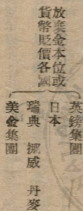 放棄金本位或
貨幣貶值各國
英鎊集團
日本
瑞典 挪威 丹麥
美金集團